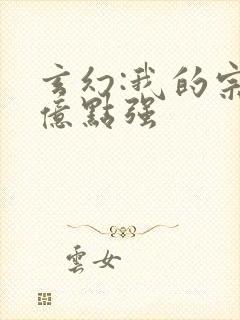 玄幻:我的宗
億點强
雲女